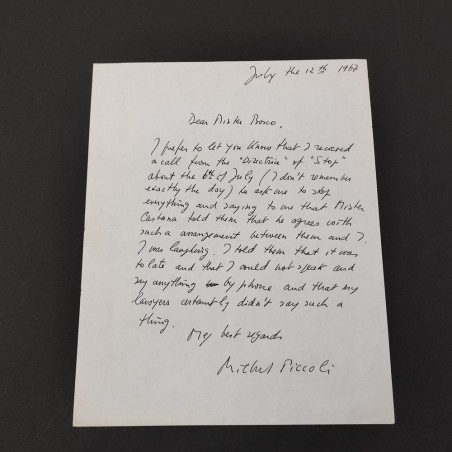 July the 12th 1967
Dear Mister Bosco.
I prefer to let you know that I received
a call from the "Direction" of "Stop"
about the 6th of July (I don't remember
exactly the day) he ask me to stop
everything and saying to me that Mister
Castana told them that he agrees with
such a arrangement between them and I.
I was laughing. I told them that it was
to late and that I could not speak and
say anything by phone and that my
lawyers certainly didn't say such a
thing.
My best regards
Michel Piccoli